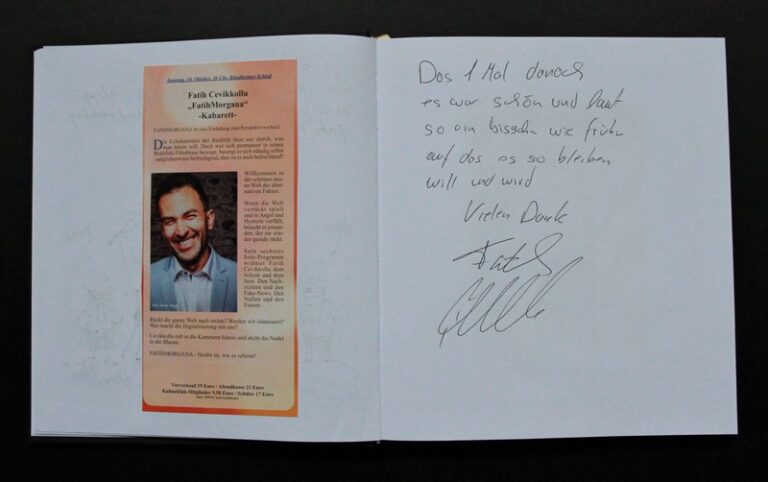 Samstag, 18. Oktober, 20 Uhr, Rindheimer Schied
Fatih Cevikkollu
„FatihMorgana“
-Kabarett-
FATIHMORGANA ist eine Einladung zum Perspektivwechsel:
Die Echokammer der Realität lässt nur durch, was
man hören will. Doch wer sich permanent in seiner
bewegt, bestätigt sich ständig selbst
befriedigend, aber ist es auch befruchtend?
Willkommen in
der schönen neu-
en Welt der alter-
nativen Fakten.
Wenn die Welt
verrückt spielt
und in Angst und
Hysterie verfällt,
braucht es jeman-
den, der sie wie-
der gerade rückt.
Sein sechstes
Solo-Programm
widmet Fatih
Cevikkollu dem
Schein und dem
Sein. Den Nach-
richten und den
Fake-News. Den
Nullen und den
Einsen.
Rückt die ganze Welt nach rechts? Werden wir islamisiert?
Was macht die Digitalisierung mit uns?
Cevikkollu ruft in die Kammern hinein und sticht die Nadel
in die Blasen.
FATIHMORGANA - Nichts ist, wie es scheint!
Vorverkauf 19 Euro / Abendkasse 21 Euro
Kulturklub-Mitglieder 9,50 Euro / Schüler 17 Euro
Das 1 Mal danach
es war schön und bunt
so ein bisschen wie früher
auf das es so bleiben
will und wird
Vielen Dank
Fatih